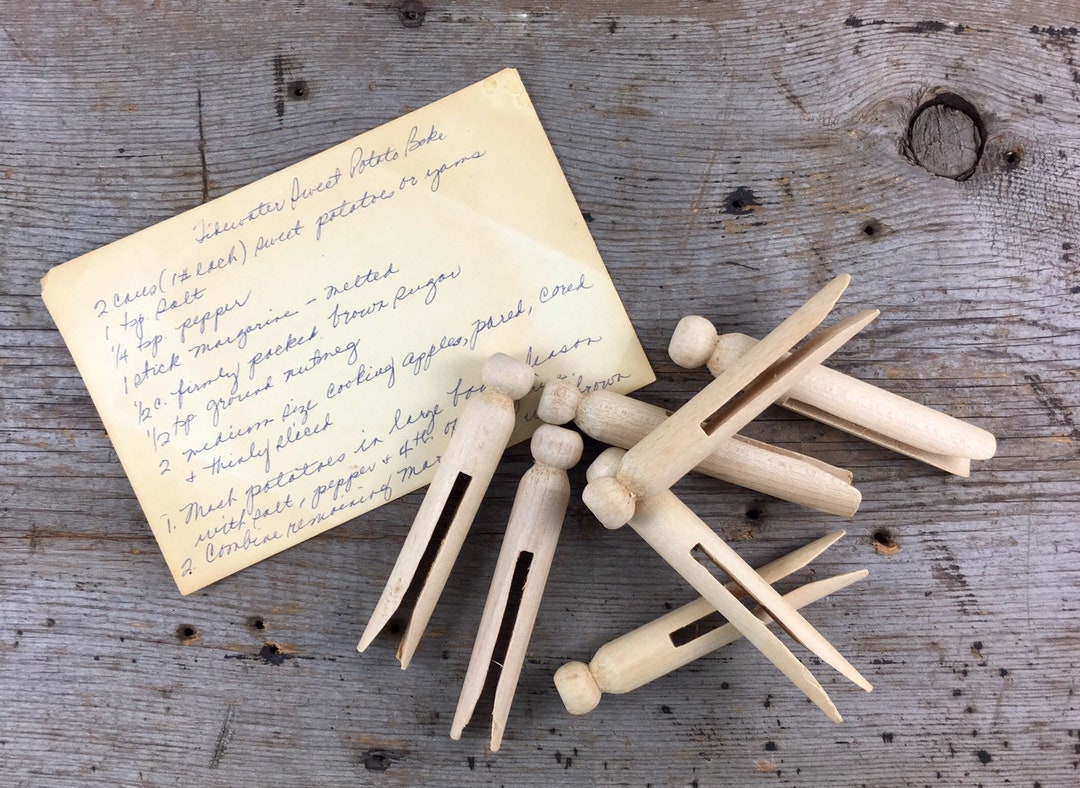 Tidewater Sweet Potato Bake
2 cans (1# each) sweet potatoes or yams
1 tsp. salt
1/4 tsp. pepper
1 stick margarine - melted
1/2 c. firmly packed brown sugar
1/2 tsp ground nutmeg
2 medium size cooking apples, pared, cored
+ thinly sliced
1. Mash potatoes in large bowl. Season
with salt, pepper + 4 tb. of brown
2. Combine remaining mar